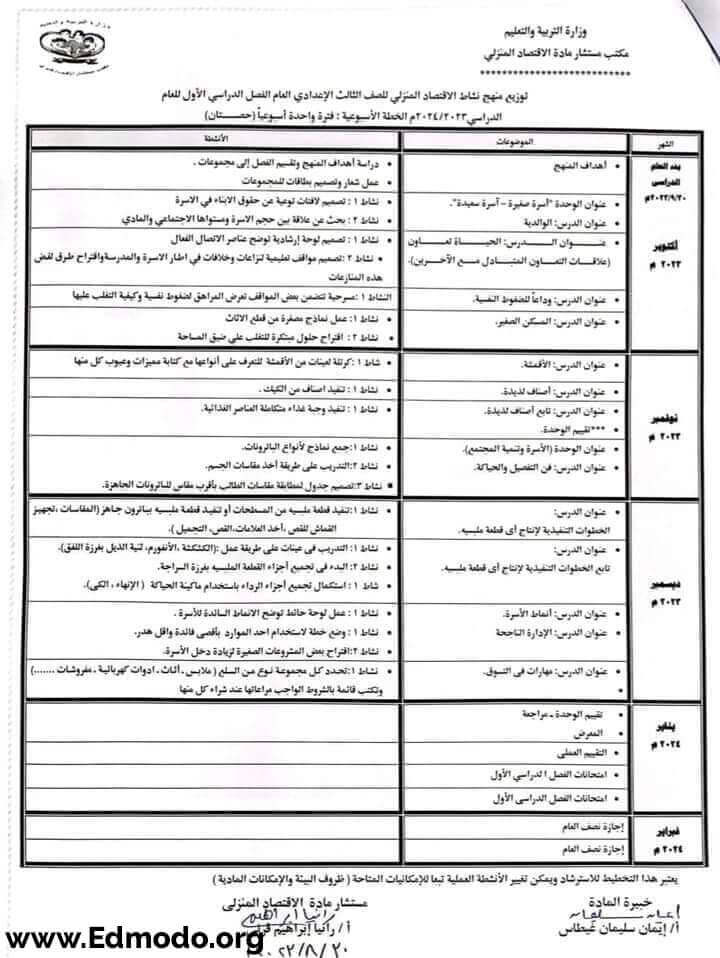 وزارة التربية والتعليم
مكتب مستشار مادة الاقتصاد المنزلي
وزارة التربية والتعليم
توزيع منهج نشاط الاقتصاد المنزلي للصف الثالث الإعدادي العام الفصل الدراسي الأول للعام
الدراسي ٢٠٢٤/٢٠٢٣م الخطة الأسبوعية : فترة واحدة أسبوعياً (حصـــتان)
الشهر الموضوعات الأنشطة
بدء العام الدراسى
• أهداف المنهج
• دراسة أهداف المنهج وتقسيم الفصل إلى مجموعات .
• عمل شعار وتصميم بطاقات للمجموعات
• عنوان الوحدة "أسرة صغيرة – أسرة سعيدة".
• عنوان الدرس: الوالدية
• نشاط ١ : تصميم لافتات توعية عن حقوق الابناء في الاسرة
• نشاط ٢ : بحث عن علاقة بين حجم الاسرة ومستواها الاجتماعي والمادي
أكتوبر ٢٠٢٣ م
• عنـــوان الـــــدرس: الحيـــاة تعـــاون (علاقـات التعاون المتبـادل مـع الآخرين).
• نشاط ١ : تصميم لوحة إرشادية توضح عناصر الاتصال الفعال
• نشاط ٢ : تصميم مواقف تعليمية لنزاعات وخلافات في اطار الاسرة والمدرسةواقتراح طرق لفض
هذه المنازعات
• عنوان الدرس: وداعاً للضغوط النفسية.
النشاط ١ : مسرحية تتضمن بعض المواقف تعرض المراهق لضغوط نفسية وكيفية التغلب عليها
• عنوان الدرس: المسكن الصغير.
• نشاط ١ : عمل نماذج مصغرة من قطع الاثاث
• نشاط ٢ : اقتراح حلول مبتكرة للتغلب على ضيق المساحة
نوفمبر ٢٠٢٣ م
• عنوان الدرس: الأقمشة.
• شاط ١ : كرتلة لعينات من الأقمشة للتعرف على أنواعها مع كتابة مميزات وعيوب كل منها
• عنوان الدرس: أصناف لذيذة.
• نشاط ١ : تنفيذ اصناف من الكيك .
• عنوان الدرس: تابع أصناف لذيذة.
• ***تقييم الوحدة.
• نشاط ١ : تنفيذ وجبة غذاء متكاملة العناصر الغذائية.
• عنوان الوحدة (الأسرة وتنمية المجتمع).
• عنوان الدرس: فن التفصيل والحياكة.
• نشاط ١:جمع نماذج لأنواع الباترونات.
• نشاط ٢:التدريب على طريقة أخذ مقاسات الجسم.
■ نشاط ٣:تصميم جدول لمطابقة مقاسات الطالب بأقرب مقاس للباترونات الجاهزة.
ديسمبر ٢٠٢٣ م
• عنوان الدرس:
الخطوات التنفيذية لإنتاج أى قطعة ملبسيه.
• نشاط ١:تنفيذ قطعة ملبسيه من المسطحات أو تنفيذ قطعة ملبسيه بباترون جاهز (المقاسات ،تجهيز
القماش للقص ،أخذ العلامات،القص، التجميل ).
• عنوان الدرس:
تابع الخطوات التنفيذية لإنتاج أى قطعة ملبسيه.
• نشاط ١: التدريب فى عينات على طريقة عمل :(الكشكشة ،الأنفورم، ثنية الذيل بغرزة اللفق).
• نشاط ٢: البدء فى تجميع أجزاء القطعة الملبسيه بغرزة السراجة.
• شاط ١ : استكمال تجميع أجزاء الرداء باستخدام ماكينة الحياكة ( الإنهاء ، الكى).
• عنوان الدرس: أنماط الأسرة.
• عنوان الدرس: الإدارة الناجحة
• نشاط ١ : عمل لوحة حائط توضح الانماط السائدة للأسرة .
• نشاط ١ : وضع خطة لاستخدام احد الموارد بأقصى فائدة واقل هدر.
• نشاط ٢:اقتراح بعض المشروعات الصغيرة لزيادة دخل الأسرة.
• عنوان الدرس: مهارات فى التسوق.
• نشاط ١:تحدد كـل مجموعـة نـوع مـن السلع ( ملابس ـ أثـاث ـ ادوات كهربائيـة ـ مفروشات .......)
وتكتب قائمة بالشروط الواجب مراعاتها عند شراء كل منها
يناير ٢٠٢٤ م
• تقييم الوحدة ـ مراجعة
• المعرض
• التقييم العملى
• امتحانات الفصل الدراسي الأول
• امتحانات الفصل الدراسى الأول
فبراير ٢٠٢٤ م
• إجازة نصف العام
• إجازة نصف العام
يعتبر هذا التخطيط للاسترشاد ويمكن تغيير الأنشطة العملية تبعا للإمكانيات المتاحة ( ظروف البيئة والإمكانات المادية )
خبيرة المادة
أ/ إيمان سليمان غيطاس
مستشار مادة الاقتصاد المنزلى
رانيا ابراهيم
أ/ رانيا إبراهيم
www.Edmodo.org